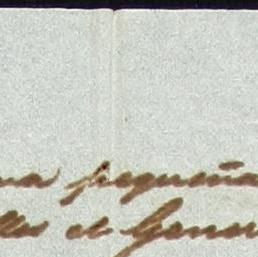 na pequeña
lles el Gener